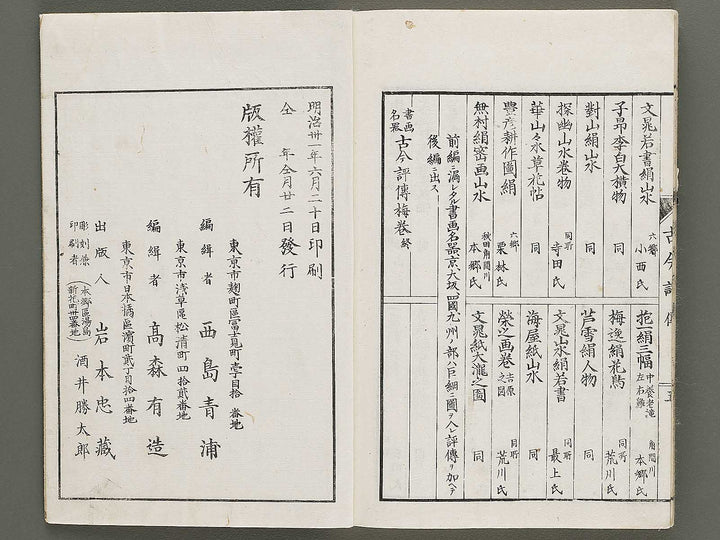 文晁若書絹山水 六郷 小西氏
子昂李白大横物 同
對山絹山水 同
探幽山水卷物 同所 寺田氏
華山々水草花帖 同
豐彦耕作圖絹 六郷 栗林氏
無村絹密画山水 秋田角間川 本郷氏
抱一絹三幅 中養老滝 左右雞 角間川 本郷氏
梅逸絹花鳥 同所 荒川氏
芦雪絹人物 同
文晁山水絹若書 同所 最上氏
海屋紙山水 同
榮之画卷 吉原之圖 同所 荒川氏
文晁紙大瀧之圖 同
前編ニ漏レタル書画名器京大坂四國九州ノ部ハ巨細ニ圖ヲ入レ評傳ヲ加ヘテ
後編ニ出ス
書画名器 古今評傳梅卷 終
古今評傳
五
明治卅一年六月二十日印刷
仝 年仝月廿二日發行
版權所有
東京市麹町區富士見町壹丁目拾 番地
編緝者 西島青浦
東京市淺草區松清町四拾貳番地
編緝者 高森有造
東京市日本橋區濱町貳丁目拾四番地
出版人 岩本忠藏
彫刻兼印刷者 (本郷區湯島新花町卅四番地) 酒井勝太郎